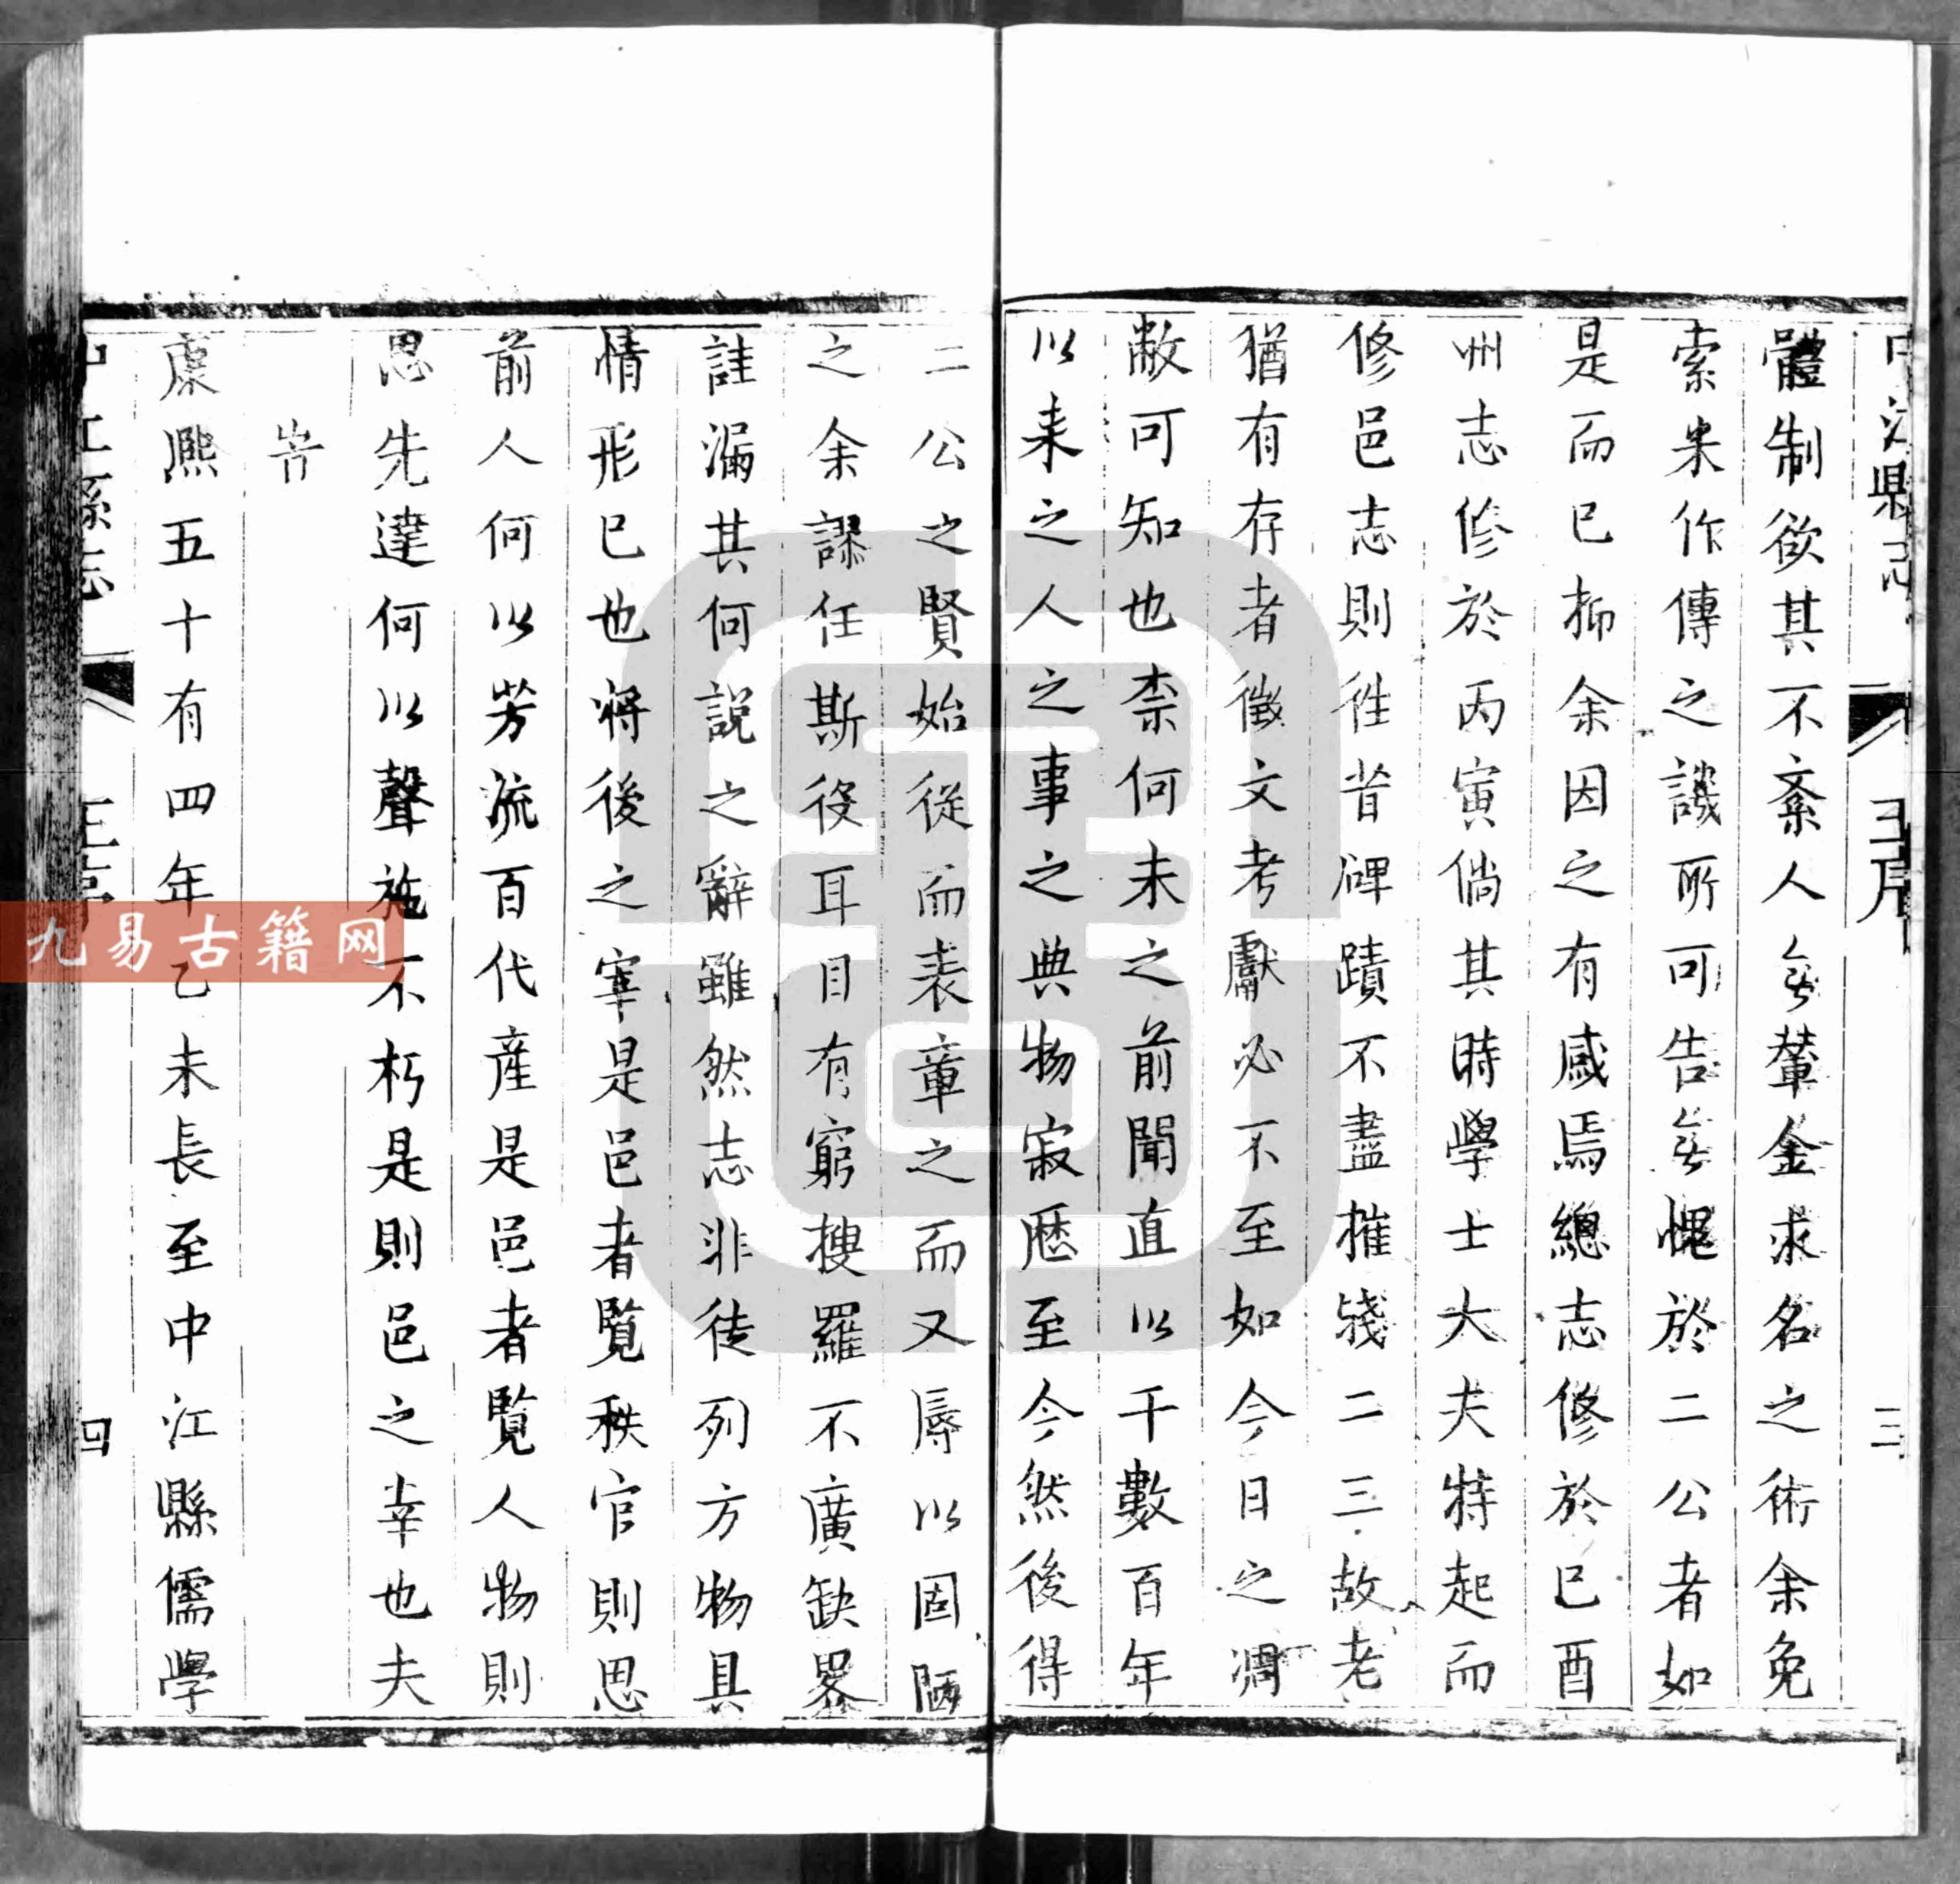 中江縣志
王序
三
體制欲其不紊人無輦金求名之術余免
索米作傳之譏所可告無愧於二公者如
是而已抑余因之有感焉總志修於己酉
州志修於丙寅倘其時學士大夫特起而
修邑志則往昔碑蹟不盡摧殘二三故老
猶有存者徵文考獻必不至如今日之凋
敝可知也柰何未之前聞直以千數百年
以来之人之事之典物寂歷至今然後得
二公之賢始從而表章之而又辱以固陋
之余謬任斯役耳目有窮搜羅不廣缺畧
詿漏其何說之辭雖然志非徒列方物具
情形已也將後之宰是邑者覽秩官則思
前人何以芳流百代產是邑者覽人物則
思先達何以聲施不朽是則邑之幸也夫
旹
康熙五十有四年乙未長至中江縣儒學
中江縣志
王序
四
九易古籍网